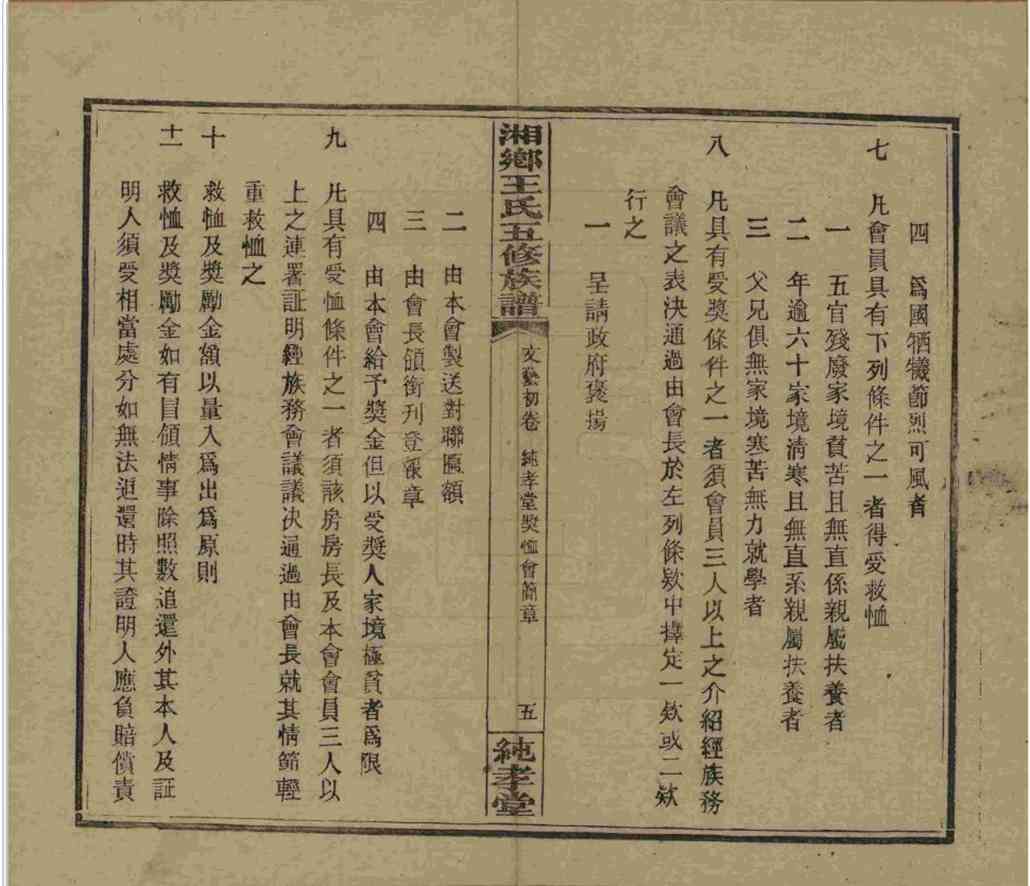 四　爲國牺犧節烈可風者
七　凡會員具有下列條件之一者得受救恤
一　五官殘廢家境貧苦且無直係親屬扶養者
二　年逾六十家境淸寒且無直系親屬扶養者
三　父兄俱無家境寒苦無力就學者
八　凡具有受獎條件之一者須會員三人以上之介紹經族務
會議之表决通過由會長於左列條欵中擇定一欵或二欵
行之
一　呈請政府褒揚
湘鄉王氏五修族譜
文藝初卷　純孝堂獎恤會簡章
五
純孝堂
二　由本會製送對聯匾額
三　由會長領銜刋登報章
四　由本會給予獎金但以受獎人家境極貧者爲限
九　凡具有受恤條件之一者須該房房長及本會會員三人以
上之連署証明經族務會議議决通過由會長就其情節輕
重救恤之
十　救恤及獎勵金額以量入爲出爲原則
十一　救恤及獎勵金如有冒領情事除照數追還外其本人及証
明人須受相當處分如無法追還時其證明人應負賠償責